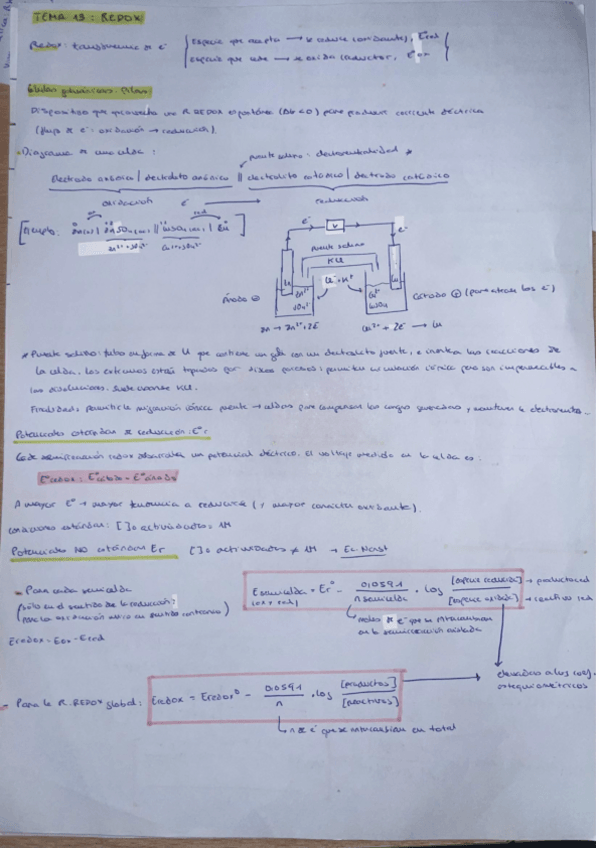 TEMA 13: REDOX
Redox: transferencia de e⁻
Especie que acepta → se reduce (oxidante), E red
Especie que cede → se oxida (reductor), E ox
Celdas galvánicas. Pilas
Dispositivo que aprovecha una R. REDOX espontánea (ΔG<0) para producir corriente eléctrica
(flujo de e⁻: oxidación → reducción).
Diagrama de una celda:
puente salino: electroneutralidad *
Electrodo anódico | electrolito anódico || electrolito catódico | electrodo catódico
oxidación e⁻ → reducción
Ejemplo: Zn(s) | ZnSO₄(ac) || CuSO₄(ac) | Cu
e⁻ V e⁻
puente salino
KCl
Cl⁻ K⁺
Ánodo ⊖
Cátodo ⊕ (para atraer los e⁻)
Zn → Zn²⁺ + 2e⁻
Cu²⁺ + 2e⁻ → Cu
* Puente salino: tubo en forma de U que contiene un gel con un electrolito fuerte, e conecta las reacciones de
la celda. Los extremos están tapados por discos porosos: permiten la circulación iónica pero son impermeables a
las disoluciones. Suele usarse KCl.
Finalidad: Permitir la migración iónica puente → celdas para compensar las cargas generadas y mantener la electroneu.
Potenciales estándar de reducción: E°r
Cada semirreacción redox desarrolla un potencial eléctrico. El voltaje medido en la celda es:
E°redox = E°cátodo - E°ánodo
A mayor E° → mayor tendencia a reducirse (y mayor carácter oxidante).
Condiciones estándar: [ ] o actividades = 1M
Potenciales NO estándar Er [ ] o actividades ≠ 1M → Ec. Nernst
- Para cada semicelda
(sólo en el sentido de la reducción;
para la oxidación signo en sentido contrario)
Eredox = Eox - Ered
Esemicelda = Er° - 0,0591 / n semicelda · log [especie reducida] / [especie oxidada]
(ox → red)
→ productos red
→ reactivos red
moles de e⁻ que se intercambian
en la semirreacción ajustada
elevados a los coef.
estequiométricos
- Para la R. REDOX global: Eredox = Eredox° - 0,0591 / n · log [productos] / [reactivos]
n de e⁻ que se intercambian en total